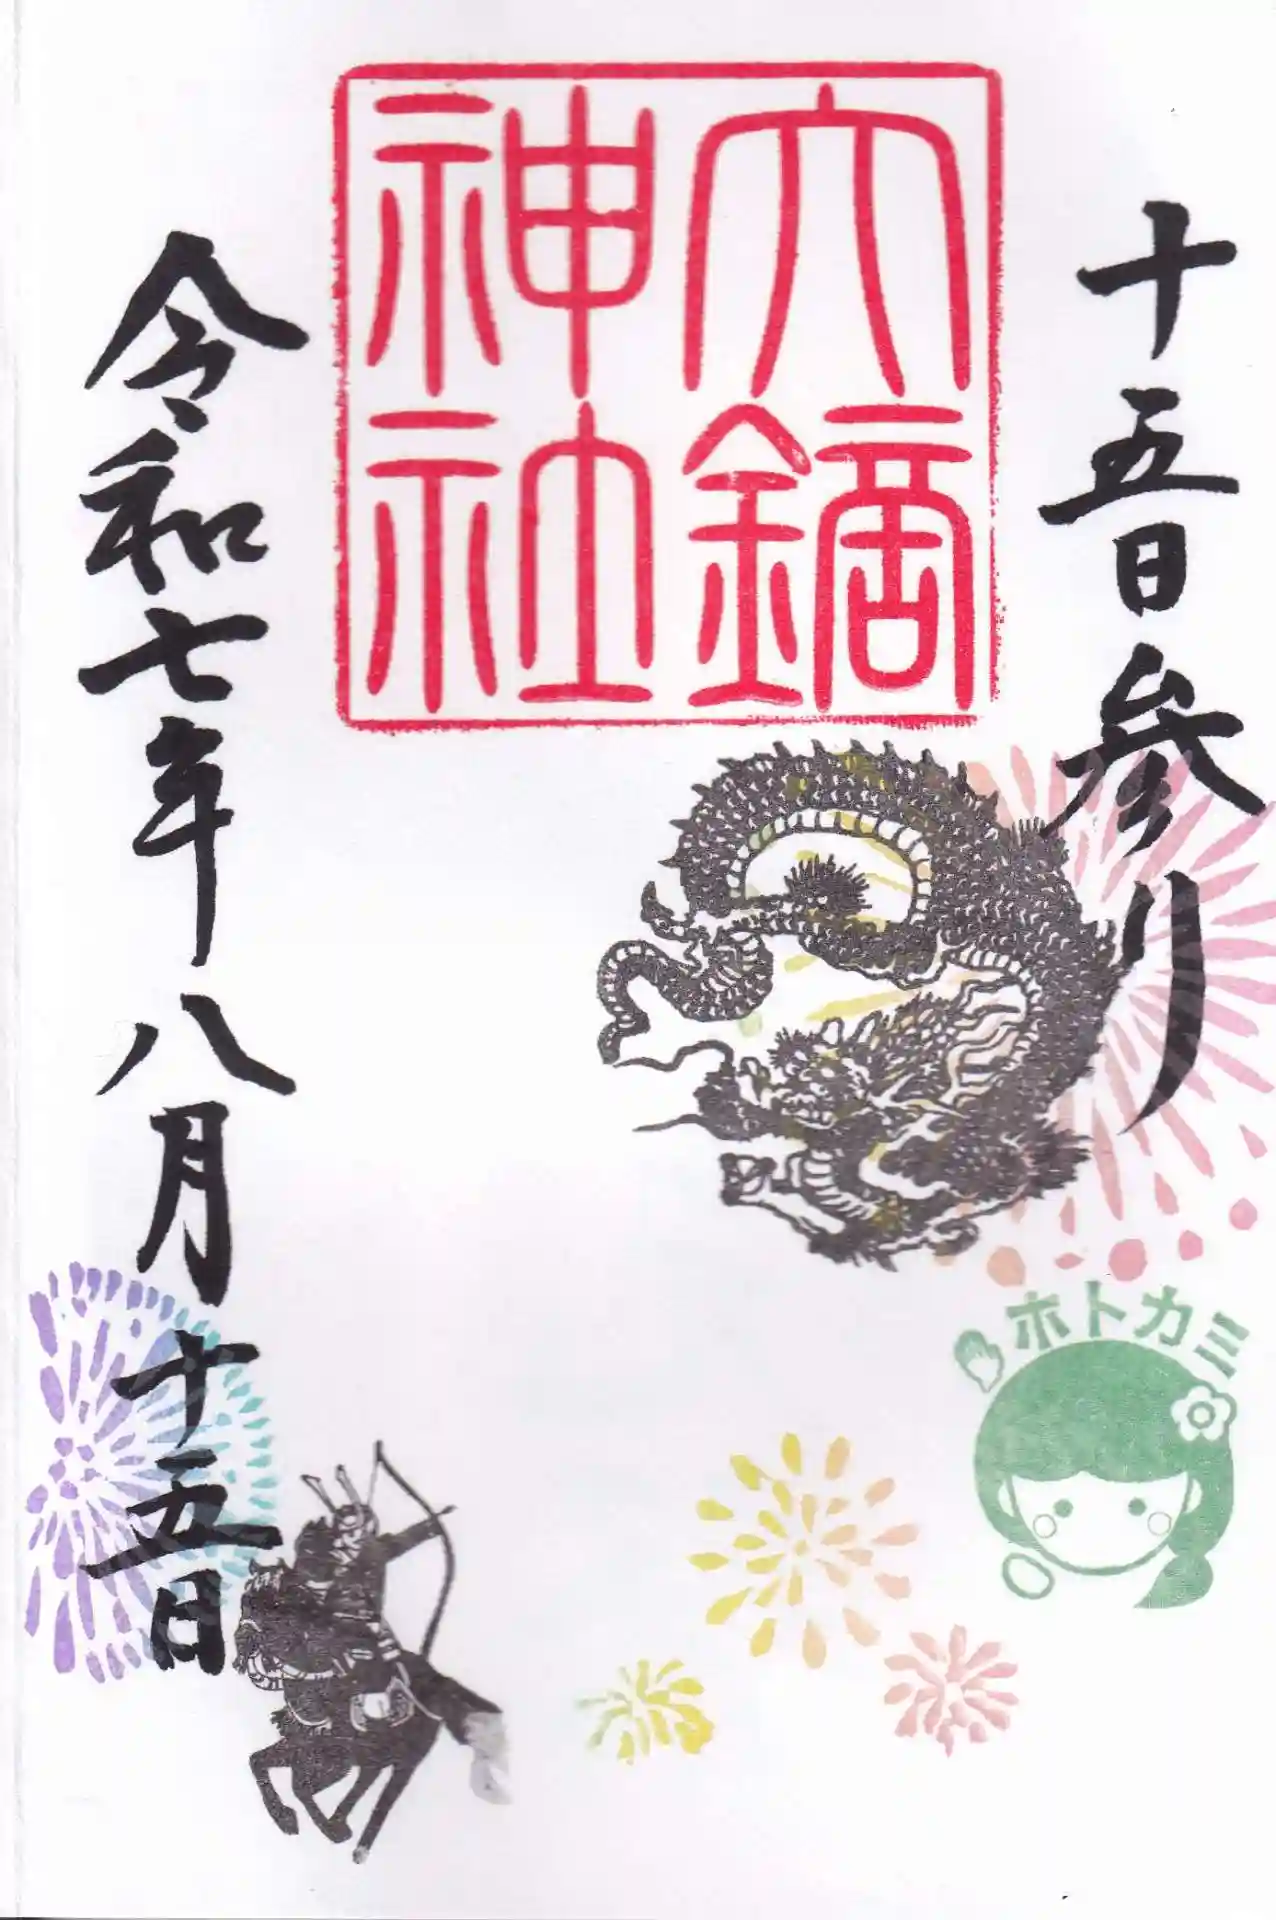 十五日参り
六鏑
神社
令和七年八月十五日
ホトカミ